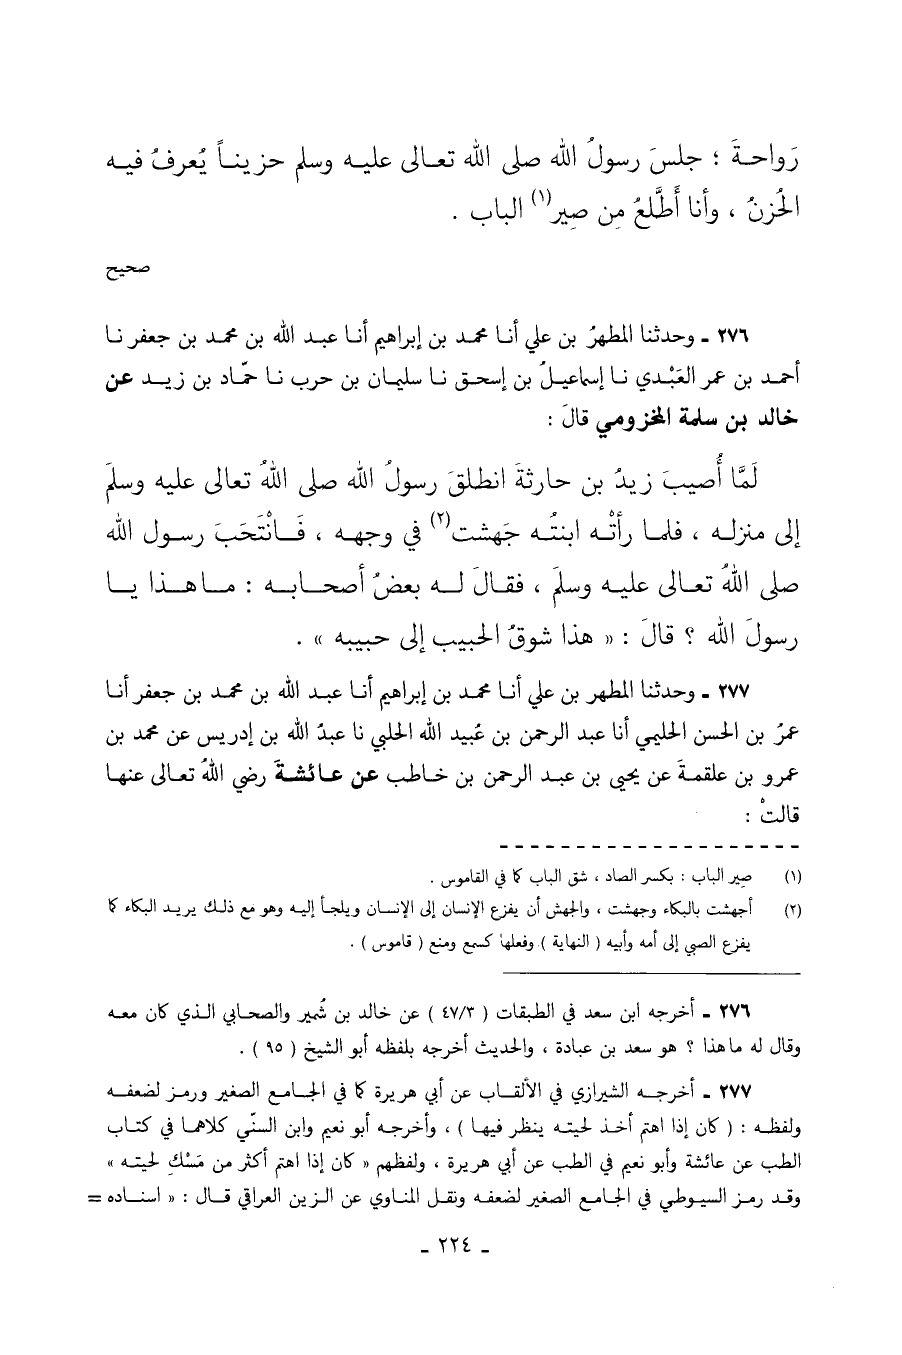 رَواحـةَ ؛ جلسَ رسولُ الله صلى الله تعـالى عليـه وسلم حزينـاً يُعرفُ فيـه
الحُزنُ ، وأنا أَطَّلعُ مِن صِيرِ(١) الباب .
صحيح
٢٧٦ ـ وحدثنا المطهرُ بن علي أنـا محمـد بن إبراهيم أنـا عبـد الله بن محمـد بن جعفر نـا
أحمـد بن عمر العَبْـدي نـا إسماعيـلُ بن إسحـق نـا سليمان بن حرب نـا حمّـاد بن زيـد عن
خالد بن سلمة المخزومي قالَ :
لَمَّا أُصيبَ زيدُ بن حارثةَ انطلقَ رسولُ الله صلى اللهُ تعالى عليه وسلمَ
إلى منزلـه ، فلمـا رأتْـه ابنتُـه جَهشت(٢) في وجهـه ، فَـانْتَحَبَ رسـول الله
صلى اللهُ تعـالى عليـه وسلمَ ، فقـالَ لـه بعضُ أصحـابـه : مـا هـذا يـا
رسولَ الله ؟ قالَ : « هذا شوقُ الحبيب إلى حبيبه » .
٢٧٧ ـ وحدثنا المطهر بن علي أنـا محمـد بن إبراهيم أنـا عبـد الله بن محمـد بن جعفر أنـا
عمرُ بن الحسن الحليمي أنا عبد الرحمن بن عُبيد الله الحلبي نا عبدُ الله بن إدريس عن محمد بن
عمرو بن علقمةَ عن يحيى بن عبـد الرحمن بن خـاطب عن عـائشـةَ رضي اللهُ تعـالى عنهـا
قالتْ :
(١) صِير الباب : بكسر الصاد ، شق الباب كما في القاموس .
(٢) أجهشت بالبكاء وجهشت ، والجهش أن يفزع الإنسان إلى الإنسان ويلجـأ إليـه وهو مع ذلـك يريـد البكاء كما
يفزع الصبي إلى أمه وأبيه ( النهاية ) وفعلها كسمع ومنع ( قاموس ) .
٢٧٦ ـ أخرجه ابن سعد في الطبقات ( ٤٧/٣ ) عن خالد بن شُمير والصحابي الـذي كان معـه
وقال له ما هذا ؟ هو سعد بن عبادة ، والحديث أخرجه بلفظه أبو الشيخ ( ٩٥ ) .
٢٧٧ ـ أخرجـه الشيرازي في الألقـاب عن أبي هريرة كما في الجـامـع الصغير ورمـز لضعفـه
ولفظـه : ( كان إذا اهتم أخـذ لحيتـه ينظر فيهـا ) ، وأخرجـه أبو نعيم وابن السنّي كلاهمـا في كتـاب
الطب عن عائشة وأبو نعيم في الطب عن أبي هريرة ، ولفظهم « كان إذا اهتم أكثر من مَسْكِ لحيتـه »
وقـد رمـز السيوطي في الجـامع الصغير لضعفـه ونقـل المنـاوي عن الـزين العراقي قـال : « اسنـاده =
ـ ٢٢٤ ـ